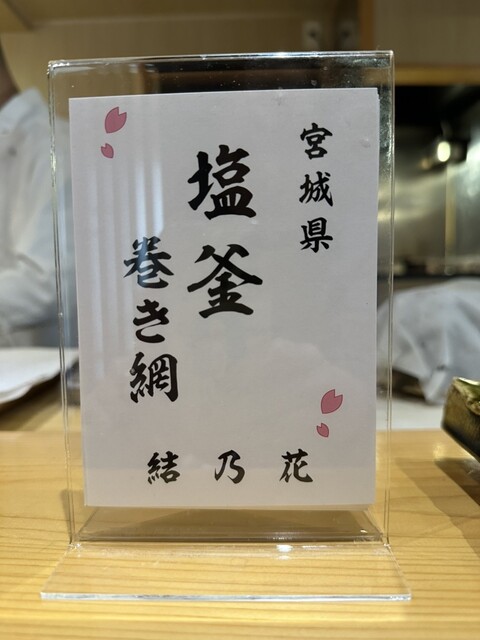 宮城県
塩釜
巻き網
結乃花